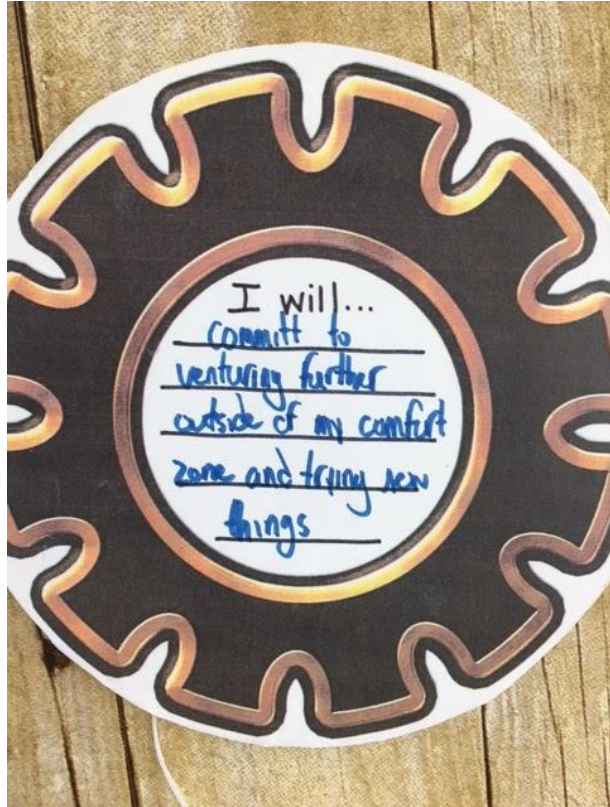 I will...
committ to
venturing further
outside of my comfort
zone and trying new
things